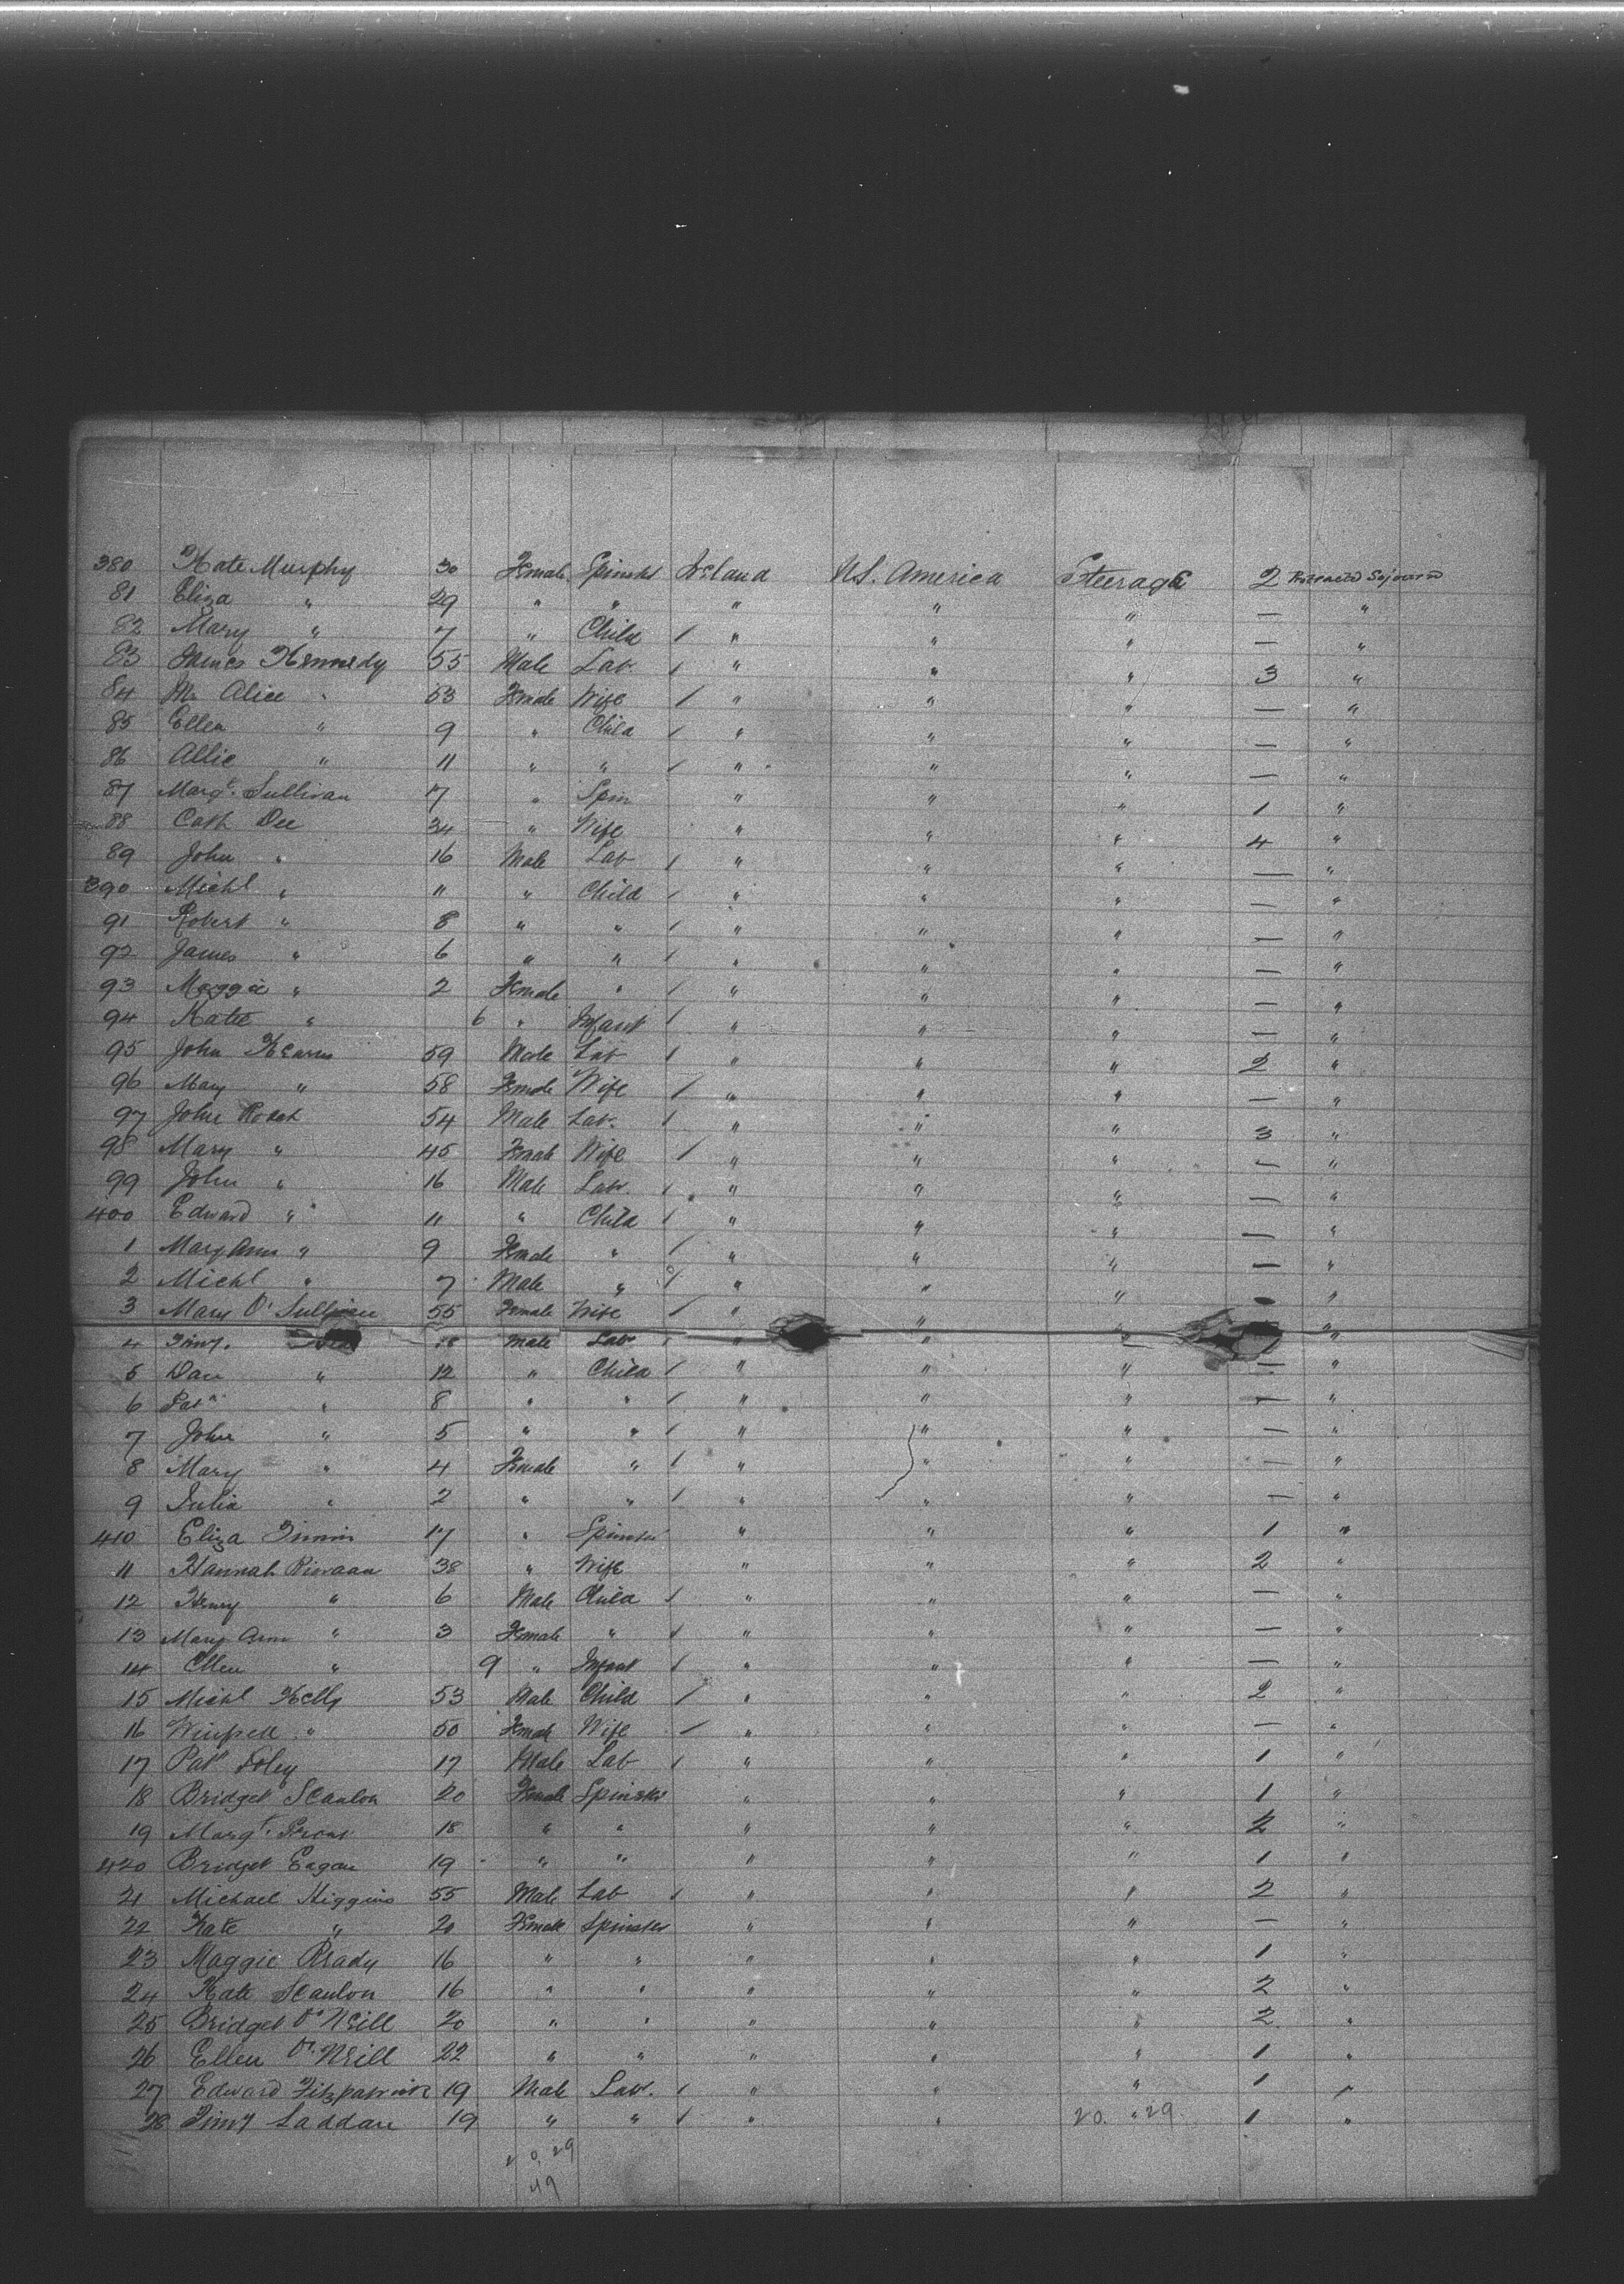 380 Kate Murphy 30 Female Spinster Ireland U.S. America Steerage 2 Protracted Sojourn
81 Eliza " 29 " " " " " — "
82 Mary " 7 " Child / " " " — "
83 James Kennedy 55 Male Lab. / " " " 3 "
84 Mrs Alice " 53 Female Wife / " " " — "
85 Ellen " 9 " Child / " " " — "
86 Allie " 11 " " / " " " — "
87 Margt. Sullivan 7 " Spin " " " 1 "
88 Cath Dee 34 " Wife " " " 4 "
89 John " 16 Male Lab / " " " — "
390 Michl " 11 " Child / " " " — "
91 Robert " 8 " " / " " " — "
92 James " 6 " " / " " " — "
93 Maggie " 2 Female " / " " " — "
94 Katie " 6 " Infant / " " " — "
95 John Kearns 59 Male Lab / " " " 2 "
96 Mary " 58 Female Wife / " " " — "
97 John Roach 54 Male Lab. / " " " 3 "
98 Mary " 45 Female Wife / " " " — "
99 John " 16 Male Lab. / " " " — "
400 Edward " 11 " Child / " " " — "
1 Mary Ann " 9 Female " / " " " — "
2 Michl " 7 Male " / " " " — "
3 Mary O'Sullivan 55 Female Wife / " " " "
4 Timy. 18 Male Lab / " " " "
5 Dan " 12 " Child / " " " — "
6 Patk " 8 " " / " " " — "
7 John " 5 " " / " " " — "
8 Mary " 4 Female " / " " " — "
9 Julia " 2 " " / " " " — "
410 Eliza 17 " Spinster " " " 1 "
11 Hannah 38 " Wife " " " 2 "
12 Henry " 6 Male Child / " " " — "
13 Mary Ann " 3 Female " / " " " — "
14 Ellen " 9 " Infant / " " " — "
15 Michl Kelly 53 Male Child / " " " 2 "
16 " 50 Female Wife / " " " — "
17 Patk Foley 17 Male Lab / " " " 1 "
18 Bridget Scanlon 20 Female Spinster " " " 1 "
19 Margt. 18 " " " " " 2 "
420 Bridget Eagan 19 " " " " " 1 "
21 Michael Higgins 55 Male Lab / " " " 2 "
22 Kate " 20 Female Spinster " " " — "
23 Maggie Brady 16 " " " " " 1 "
24 Kate Scanlon 16 " " " " " 2 "
25 Bridget O'Neill 20 " " " " " 2 "
26 Ellen O'Neill 22 " " " " " 1 "
27 Edward Fitzpatrick 19 Male Lab. / " " " 1 "
28 Timy Laddan 19 " " / " " 20. " 29 1 "
20, 29
49